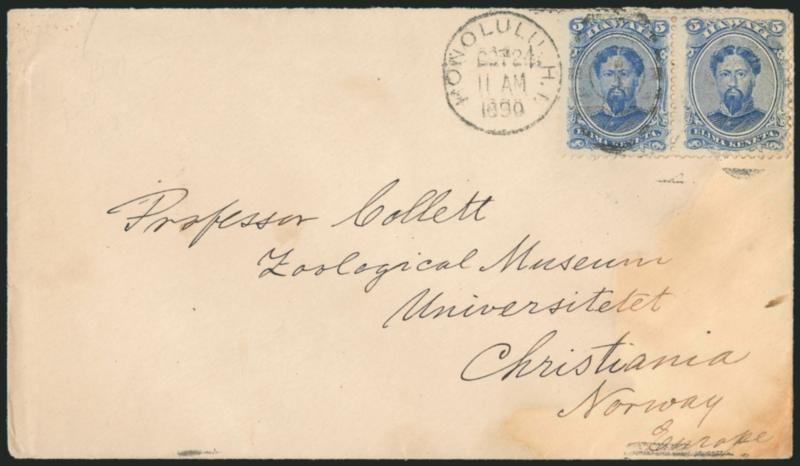 HONOLULU H.I.
OCT 24
11 AM
1890
5 HAWAII 5
ELIMA KENETA
5 HAWAII 5
ELIMA KENETA
Professor Collett
Zoological Museum
Universitetet
Christiania
Norway
Europe